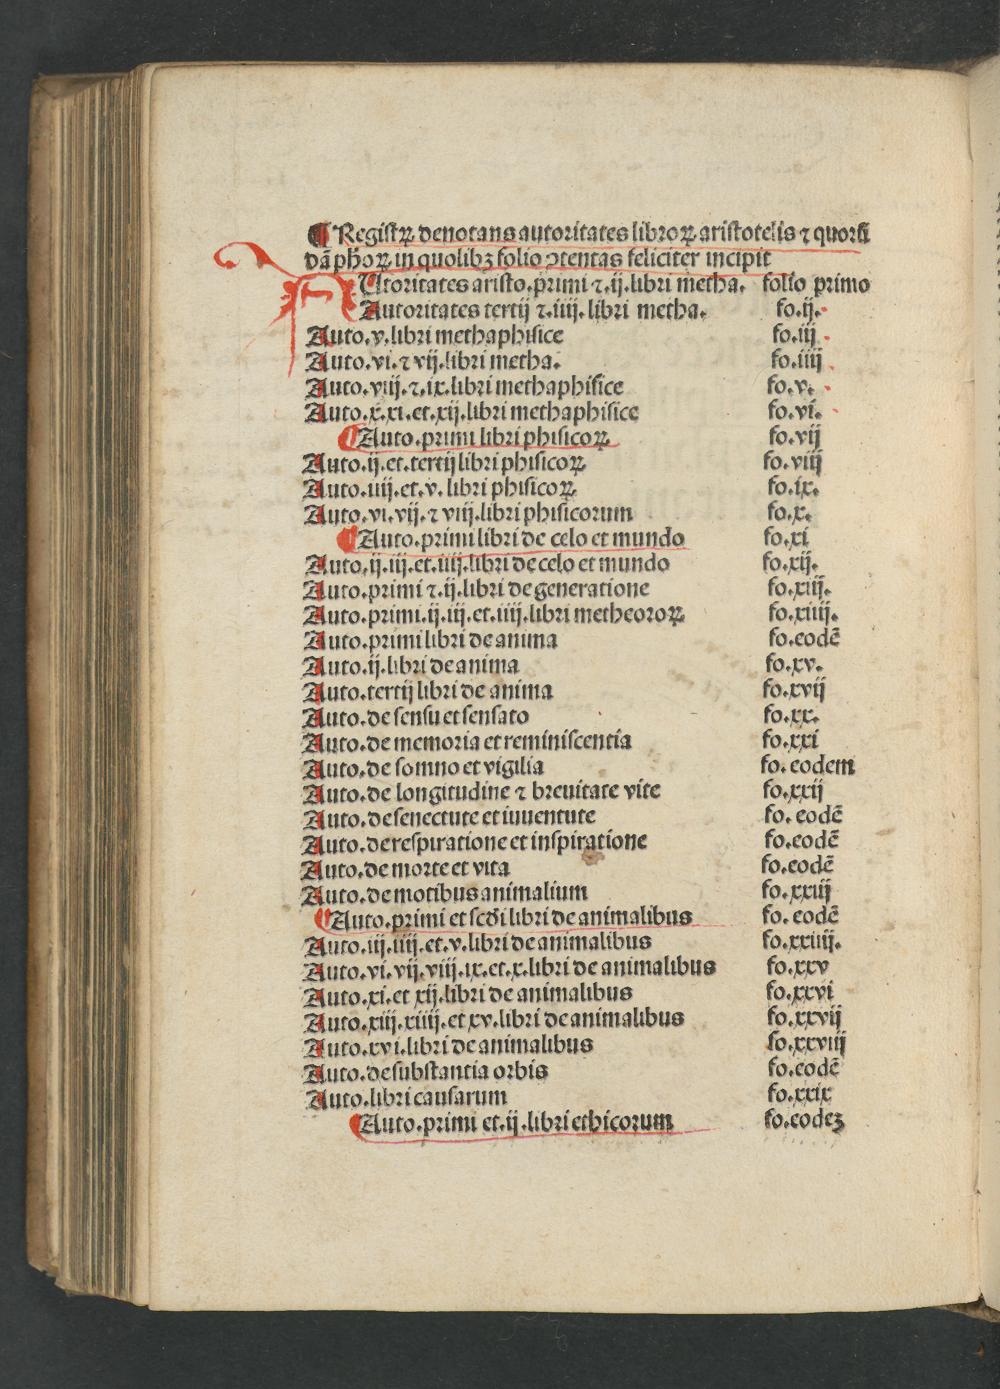 ¶ Registꝝ denotans autoritates libroꝝ aristotelis ⁊ quorsū
dā ph̄oꝝ in quolibꝫ folio ↄtentas feliciter incipit
Utoritates aristo. primi ⁊.ij. libri metha. folio primo
Autoritates tertij ⁊.iiij. libri metha. fo.ij.
Auto.v.libri methaphisice fo.iij
Auto.vi.⁊ vij.libri metha. fo.iiij
Auto.viij.⁊.ix.libri methaphisice fo.v.
Auto.x.xi.et.xij.libri methaphisice fo.vi.
¶ Auto.primi libri phisicoꝝ fo.vij
Auto.ij.et.tertij libri phisicoꝝ fo.viij
Auto.iiij.et.v. libri phisicoꝝ fo.ix.
Auto.vi.vij.⁊ viij.libri phisicorum fo.x.
¶ Auto.primi libri de celo et mundo fo.xi
Auto.ij.iij.et.iiij.libri de celo et mundo fo.xij.
Auto.primi ⁊.ij.libri de generatione fo.xiij.
Auto.primi.ij.iij.et.iiij.libri metheoroꝝ fo.xiiij.
Auto.primi libri de anima fo.eodē
Auto.ij.libri de anima fo.xv.
Auto.tertij libri de anima fo.xvij
Auto.de sensu et sensato fo.xx.
Auto.de memoria et reminiscentia fo.xxi
Auto.de somno et vigilia fo.eodem
Auto.de longitudine ⁊ breuitate vite fo.xxij
Auto.de senectute et iuuentute fo. eodē
Auto.de respiratione et inspiratione fo.eodē
Auto.de morte et vita fo.eodē
Auto.de motibus animalium fo.xxiij
¶ Auto.primi et scdi libri de animalibus fo. eodē
Auto.iij.iiij.et.v.libri de animalibus fo.xxiiij.
Auto.vi.vij.viij.ix.et.x.libri de animalibus fo.xxv
Auto.xi.et xij.libri de animalibus fo.xxvi
Auto.xiij.xiiij.et xv.libri de animalibus fo.xxvij
Auto.xvi.libri de animalibus fo.xxviij
Auto.de substantia orbis fo.eodē
Auto.libri causarum fo.xxix
¶ Auto.primi et.ij.libri ethicorum fo.eodeꝫ